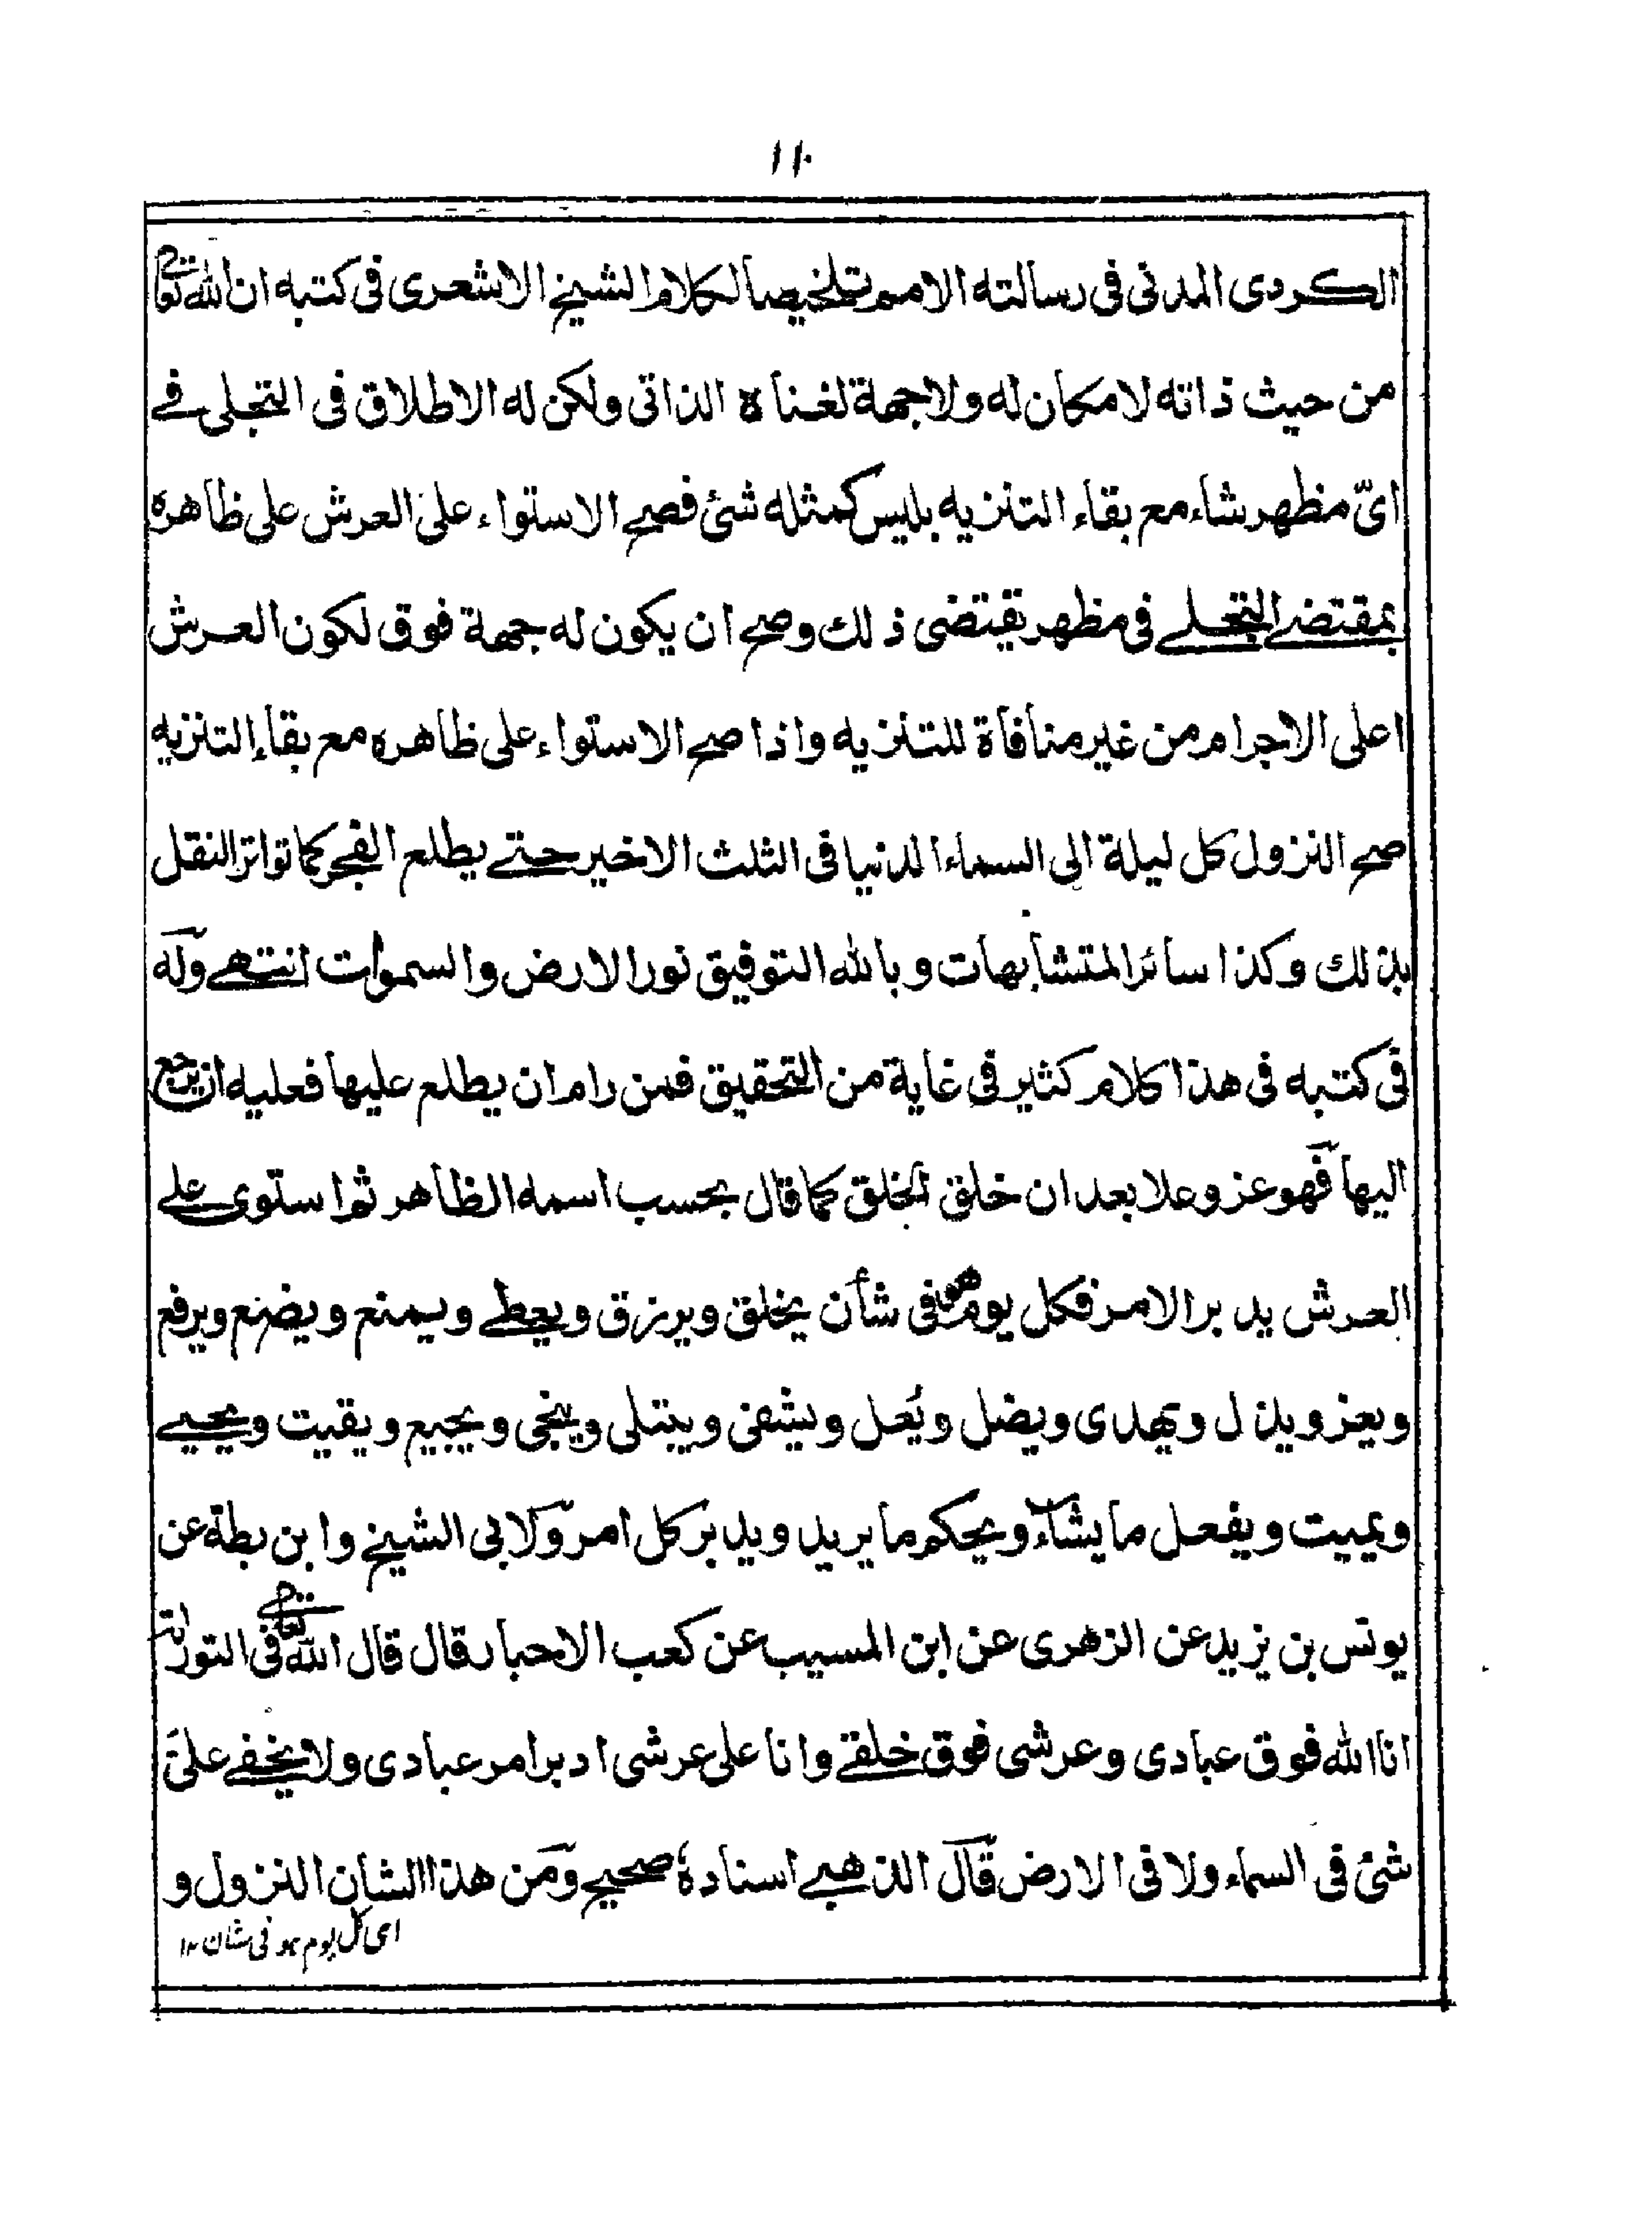 ١١٠
الكردى المدنى فى رسالته الامم تلخيصا لكلام الشيخ الاشعرى فى كتبه ان الله تعالى
من حيث ذاته لا مكان له ولا جهة لغناه الذاتى ولكن له الاطلاق فى التجلى فى
اىّ مظهر شاء مع بقاء التنزيه بليس كمثله شئ فصح الاستواء على العرش على ظاهره
بمقتضى التجلى فى مظهر يقتضى ذلك وصح ان يكون له جهة فوق لكون العرش
اعلى الاجرام من غير منافاة للتنزيه واذا صح الاستواء على ظاهره مع بقاء التنزيه
صح النزول كل ليلة الى السماء الدنيا فى الثلث الاخير حتى يطلع الفجر كما تواتر النقل
بذلك وكذا سائر المتشابهات وبالله التوفيق نور الارض والسموات انتهى وله
فى كتبه فى هذا كلام كثير فى غاية من التحقيق فمن رام ان يطلع عليها فعليه ان يرجع
اليها فهو عز وعلا بعد ان خلق الخلق كما قال بحسب اسمه الظاهر ثم استوى على
العرش يدبر الامر فكل يوم هو فى شأن يخلق ويرزق ويعطى ويمنع ويضع ويرفع
ويعز ويذل ويهدى ويضل ويُعل ويشفى ويبتلى وينجى ويجيع ويقيت ويحيى
ويميت ويفعل ما يشاء ويحكم ما يريد ويدبر كل امر ولابى الشيخ وابن بطة عن
يونس بن يزيد عن الزهرى عن ابن المسيب عن كعب الاحبار قال قال الله تعالى فى التوراة
انا الله فوق عبادى وعرشى فوق خلقى وانا على عرشى ادبر امر عبادى ولا يخفى علىَّ
شئ فى السماء ولا فى الارض قال الذهبى اسناده صحيح ومن هذا الشان النزول و
اى كل يوم هو فى شان ١٢